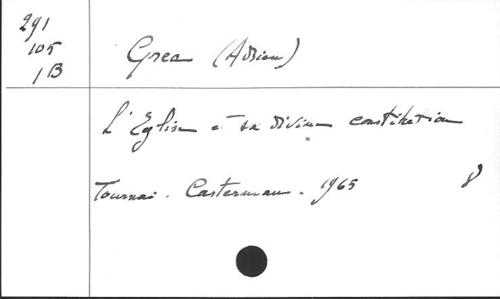 291
105
1B
Grea (Adrien)
L'Eglise et sa divine constitution
Tournai. Casterman. 1965 8